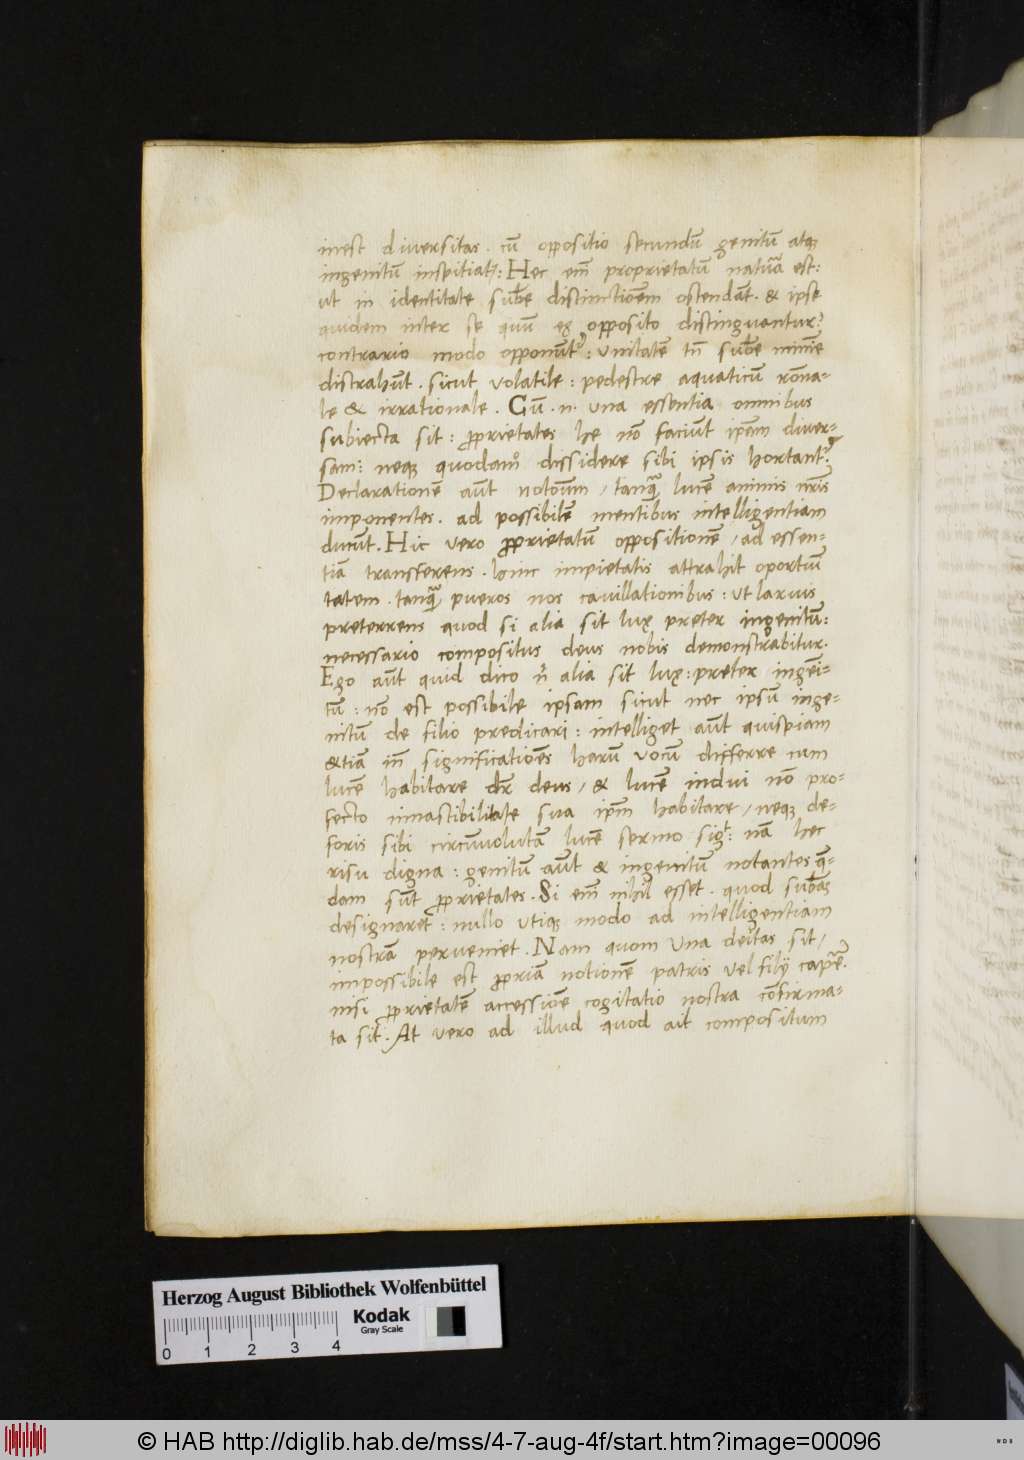 inest diversitas. cũ oppositio secundũ genitũ atq;
ingenitũ inspitiat᷑: Hec em̃ proprietatũ natũa est:
ut in identitate sub̃e distinctionẽm ostendãt. & ipse
quidem inter se quũ ex opposito distinguantur:
contrario modo opponũt᷑: unitatẽ tñ sub̃e minie
distrahũt. sicut volatile: pedestre aquaticũ rõna-
le & irrationale. Cũ .n. una essentia omnibus
subiecta sit: ꝓprietates he nõ faciũt ip̃am diver-
sam: neq; quodam̊ dissidere sibi ipsis hortant᷑.
Declarationẽ aũt notoũm / tanq̃ lucẽ animis nr̃is
imponentes. ad possibilẽ mentibus intelligentiam
ducũt. Hic vero ꝓprietatũ oppositionẽ / ad essen-
tiã transferens. hinc impietatis attrahit oportũi
tatem. tanq̃ pueros nos cavillationibus: ut larvis
preterrens quod si alia sit lux preter ingenitũ:
necessario compositus deus nobis demonstrabitur.
Ego aũt quid dico ñ alia sit lux: preter ingẽi-
tũ: nõ est possibile ipsam sicut nec ipsũ inge-
nitũ de filio predicari: intelliget aũt quispiam
&tiã iñ significatiões harũ vocũ differre cum
lucẽ habitare dr̃ deus / & lucẽ indui nõ pro-
fecto inuastibilitate sua ip̃m habitare / neq; de-
foris sibi circũvolutã lucẽ sermo sigt: nã hec
risu digna: genitũ aũt & ingenitũ notantes q̃-
dam sũt ꝓprietates. Si em̃ nihil esset. quod sub̃as
designaret: nullo utiq; modo ad intelligentiam
nostrã perveniet. Nam quom una deitas sit /
impossibile est ꝓpriã notionẽ patris vel filij cap̃e.
nisi ꝓprietatẽ accessiõe cogitatio nostra cõfirma-
ta sit. At vero ad illud quod ait compositum
Herzog August Bibliothek Wolfenbüttel
Kodak
Gray Scale
0 1 2 3 4
© HAB http://diglib.hab.de/mss/4-7-aug-4f/start.htm?image=00096